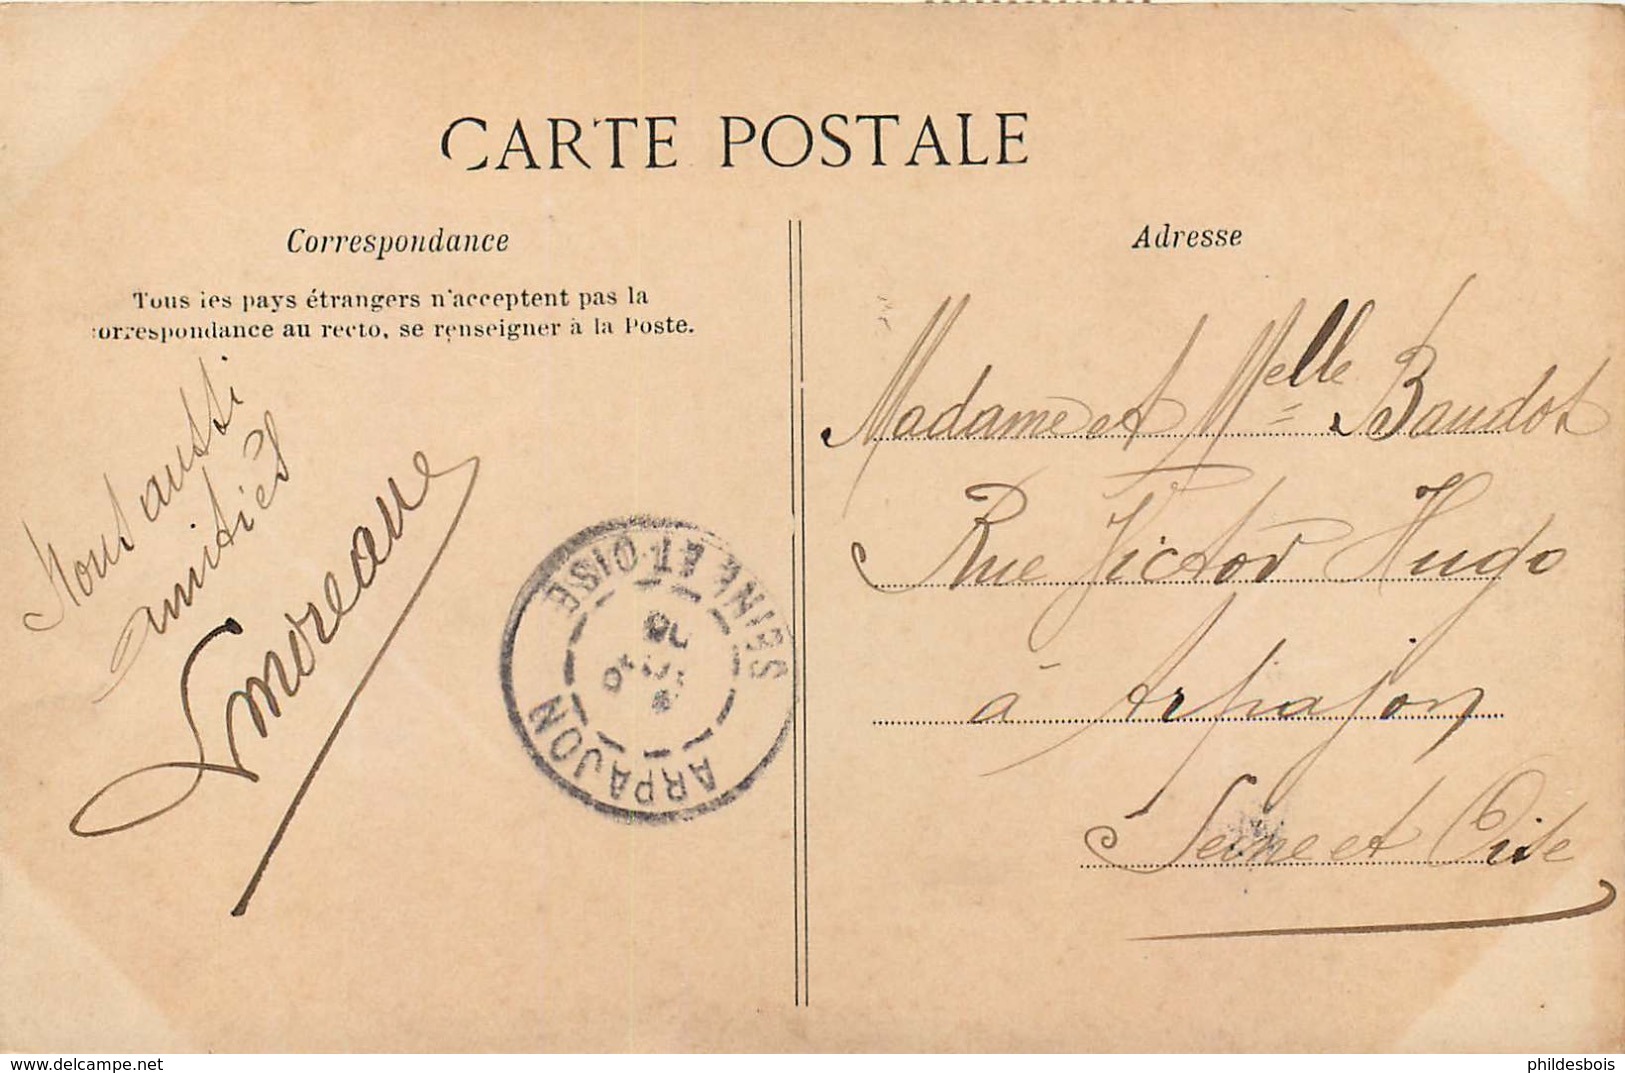 CARTE POSTALE
Correspondance
Tous les pays étrangers n'acceptent pas la
correspondance au recto, se renseigner à la Poste.
Nous aussi
amitiés
Lmoreau
Adresse
Madame et Melle Baudot
Rue Victor Hugo
à Arpajon
Seine et Oise
ARPAJON
SEINE ET OISE
delcampe.net
phildesbois